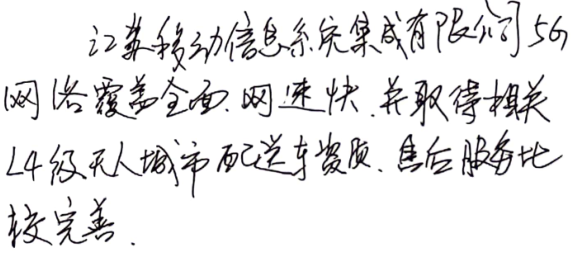 江苏移动信息系统集成有限公司5G
网络覆盖全面.网速快.并取得相关
L4级无人城市配送车资质.售后服务比
较完善.